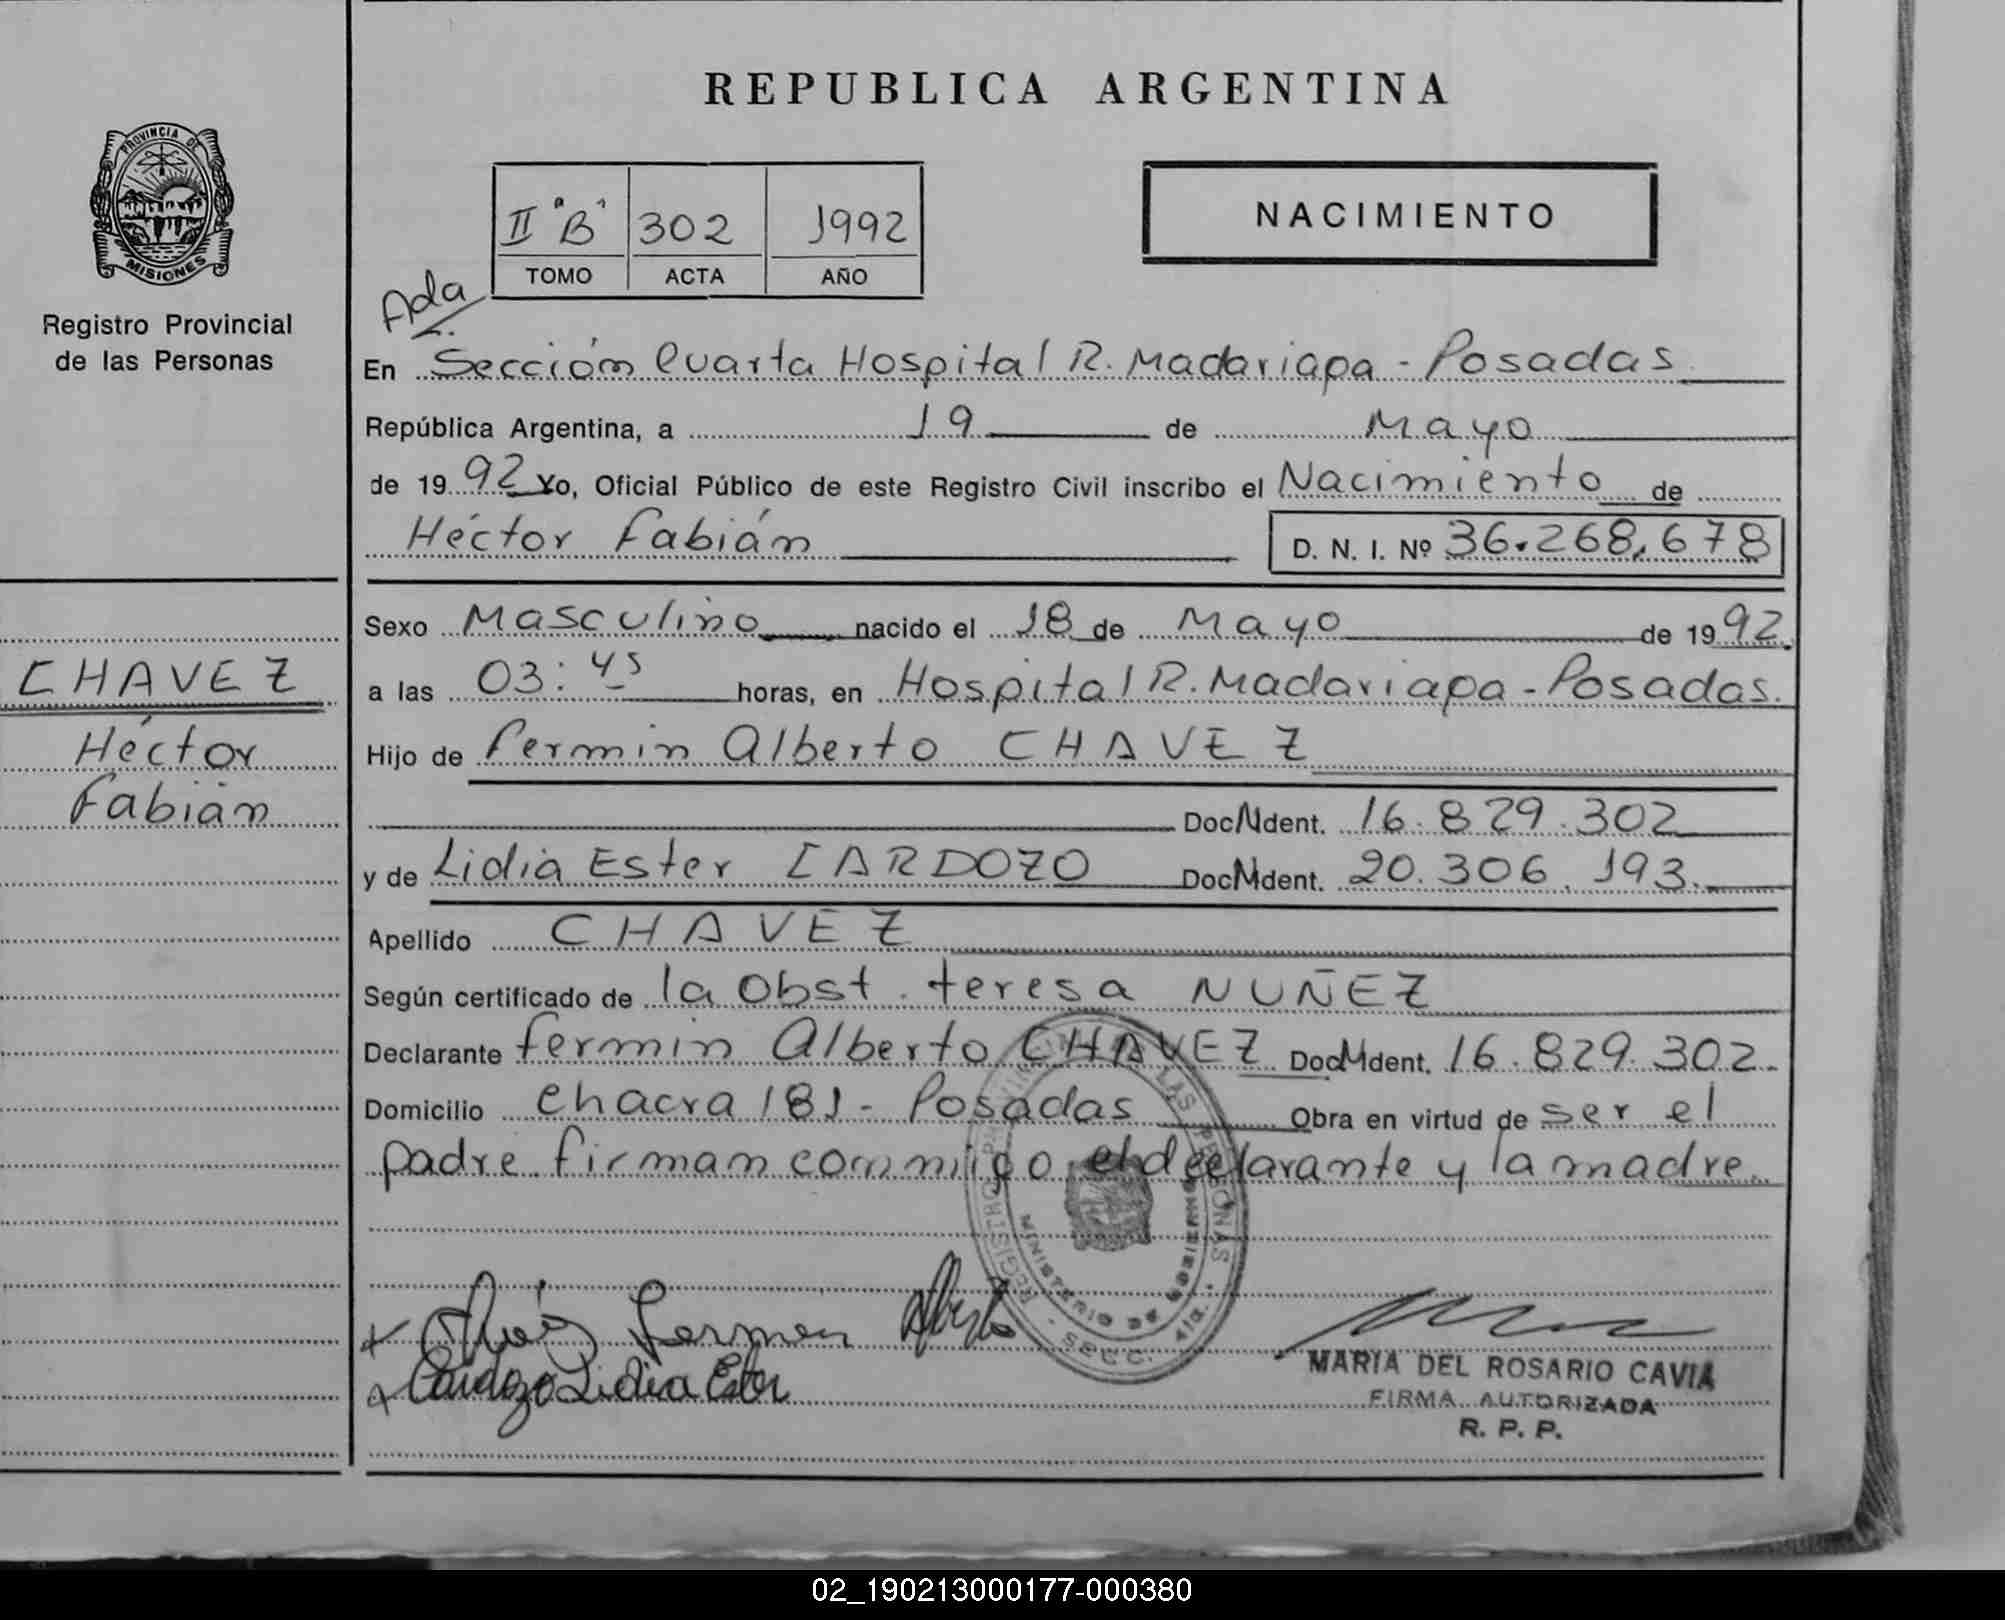 REPUBLICA ARGENTINA
PROVINCIA DE
MISIONES
Registro Provincial
de las Personas
II "B" 302 1992
TOMO ACTA AÑO
NACIMIENTO
Ada
En Sección Cuarta Hospital R. Madariaga - Posadas
República Argentina, a 19 de Mayo
de 1992 Yo, Oficial Público de este Registro Civil inscribo el Nacimiento de
Héctor Fabián D. N. I. Nº 36.268.678
Sexo Masculino nacido el 18 de Mayo de 1992.
CHAVEZ
a las 03:45 horas, en Hospital R. Madariaga - Posadas.
Héctor
Hijo de Fermin Alberto CHAVEZ
Fabián
Doc. Ident. 16.829.302
y de Lidia Ester CARDOZO Doc. Ident. 20.306.193.
Apellido CHAVEZ
Según certificado de la Obst. teresa NUÑEZ
Declarante fermin Alberto CHAVEZ Doc. Ident. 16.829.302.
Domicilio Chacra 181 - Posadas Obra en virtud de ser el
padre firman conmigo el declarante y la madre.
REGISTRO PROVINCIAL DE LAS PERSONAS
MINISTERIO DE GOBIERNO
SECC. 4ta.
Chávez Fermin Alberto
Cardozo Lidia Ester
MARIA DEL ROSARIO CAVIA
FIRMA AUTORIZADA
R. P. P.
02_190213000177-000380